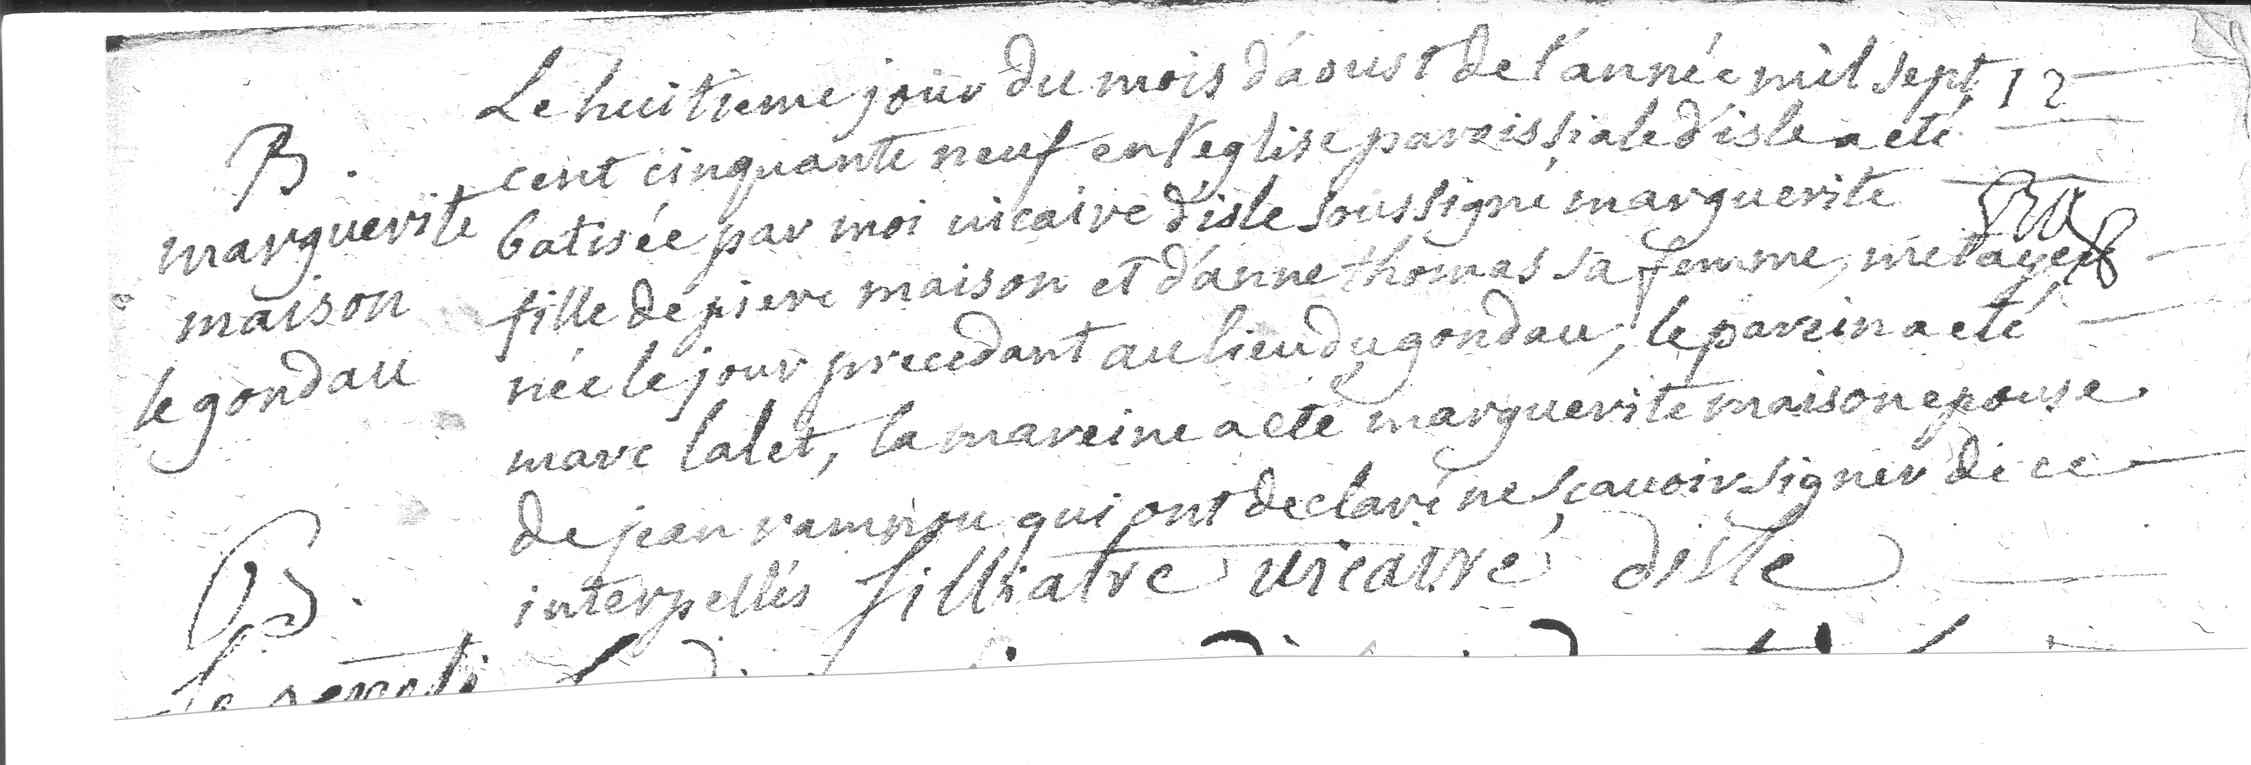 Le huitieme jour du mois d'aoust de l'année mil sept 12
B.
cent cinquante neuf en l'eglise paroissiale d'isle a eté
marguerite
batisée par moi vicaire d'isle soussigné marguerite
maison
fille de piere maison et d'anne thomas sa femme, metayers
le gondau
née le jour precedant au lieu du gondau, le parein a eté
marc lalet, la mareine a eté marguerite maison epouse
de jean ramnou qui ont declaré ne sçavoir signer de ce
B.
interpellés filliatre vicaire d'isle